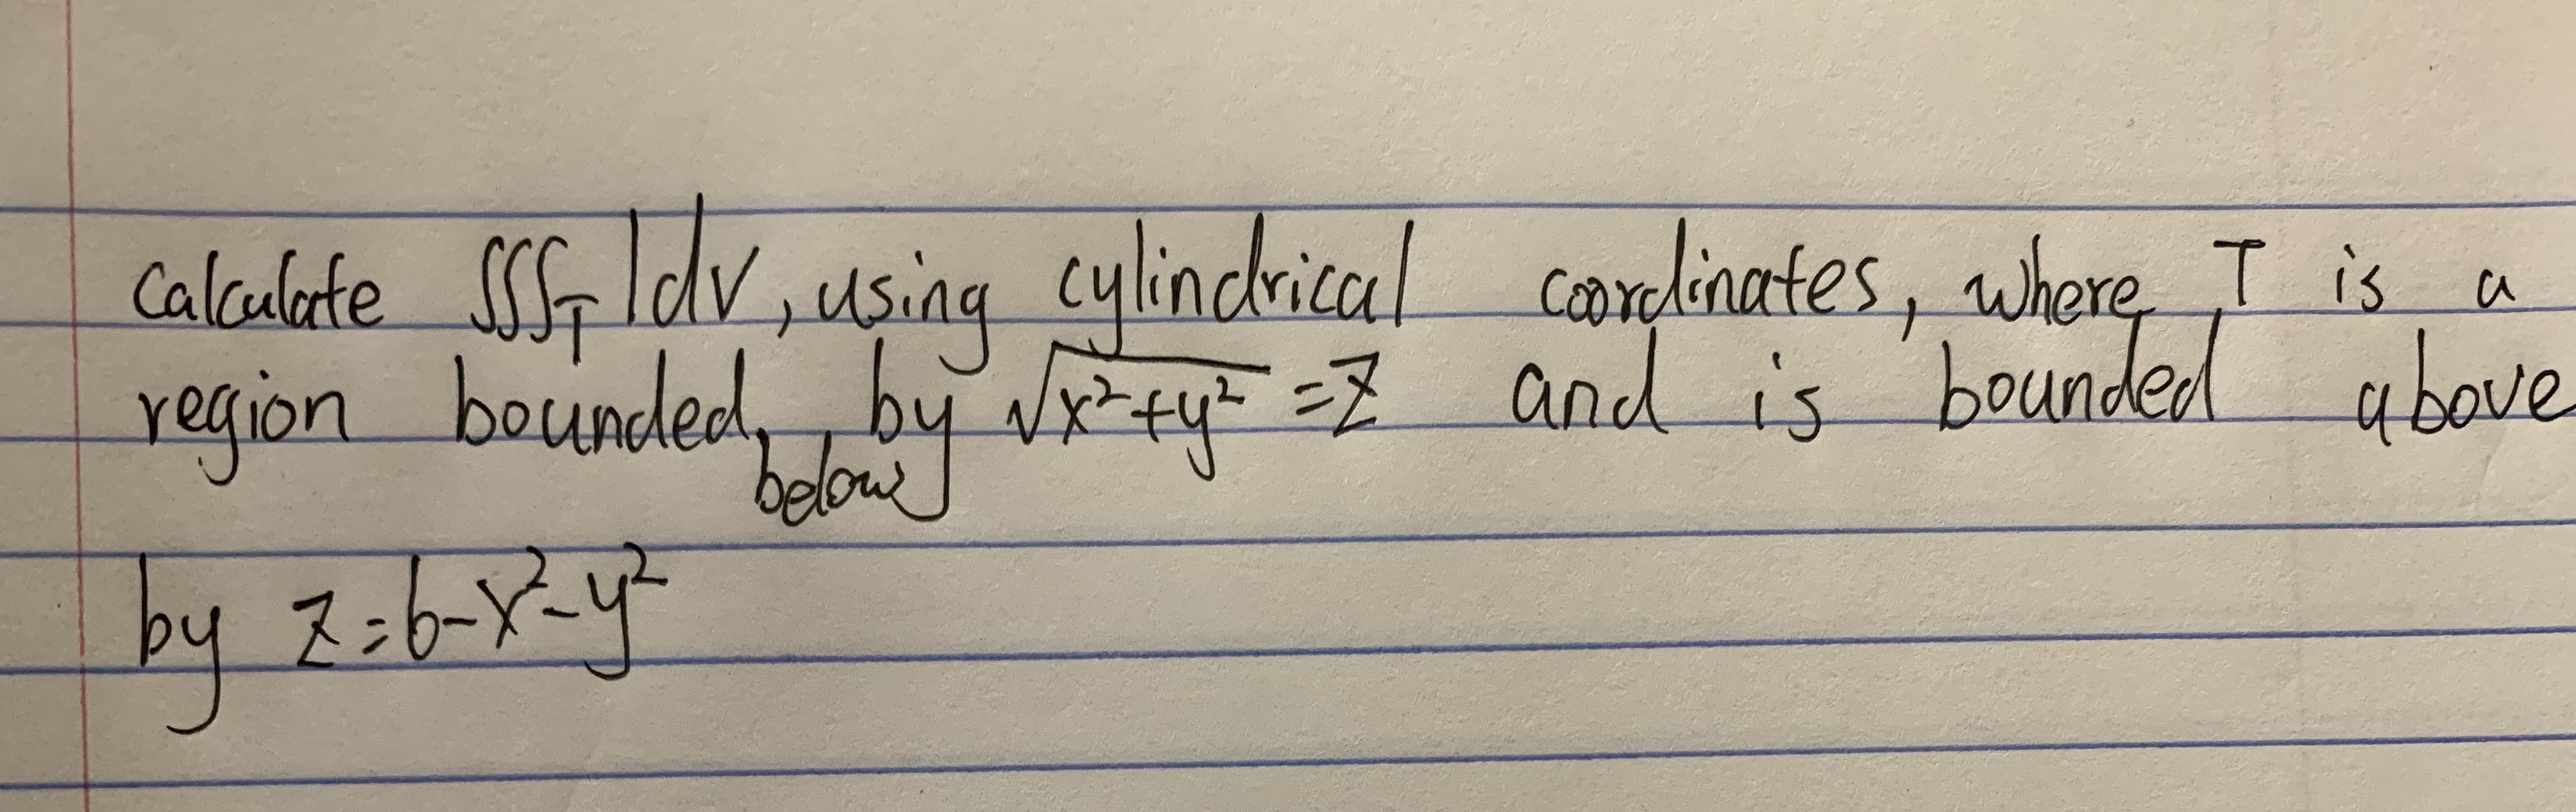 Calculate ∭_T 1dv, using cylindrical coordinates, where T is a
region bounded by √(x²+y²) = z and is bounded above
below
by z = 6-x²-y²